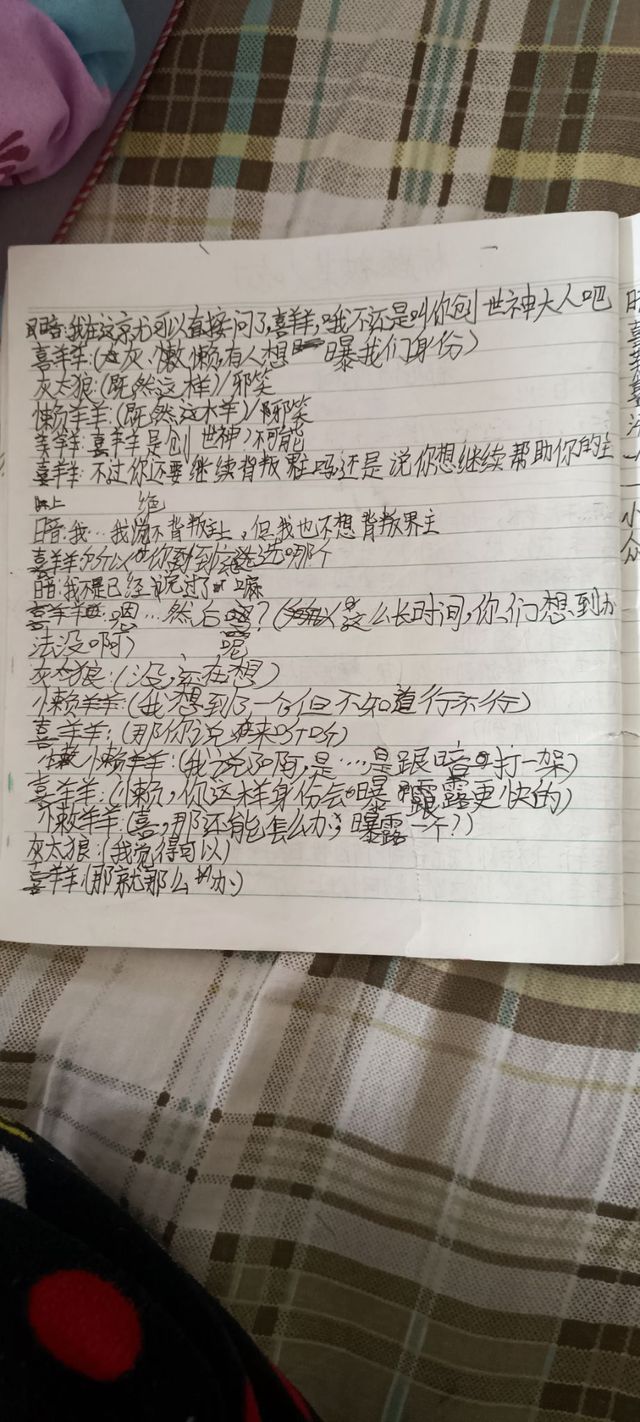 暗:我在这就可以直接问了,喜羊羊,哦不还是叫你创世神大人吧
喜羊羊:(灰,懒,有人想曝我们身份)
灰太狼:(既然这样)/邪笑
懒羊羊:(既然这样)/邪笑
美羊羊:喜羊羊是创世神,不可能
喜羊羊:不过你还要继续背叛界主吗还是说你想继续帮助你的主
上 绝
暗:我…我不背叛主上,但我也不想背叛界主
喜羊羊:所以你到底选哪个
暗:我不是已经说过了嘛
喜羊羊:嗯…然后呢?(这么长时间,你们想到办
法没啊)
灰太狼:(没,在想)
懒羊羊:(我想到了一个但不知道行不行)
喜羊羊:(那你说来听听)
懒羊羊:(我说啊,是…,是跟暗打一架)
喜羊羊:(懒,你这样身份会曝露更快的)
懒羊羊:(喜,那还能怎么办,曝露一个?)
灰太狼:(我觉得可以)
喜羊羊:(那就那么办)
暗
喜
小
众